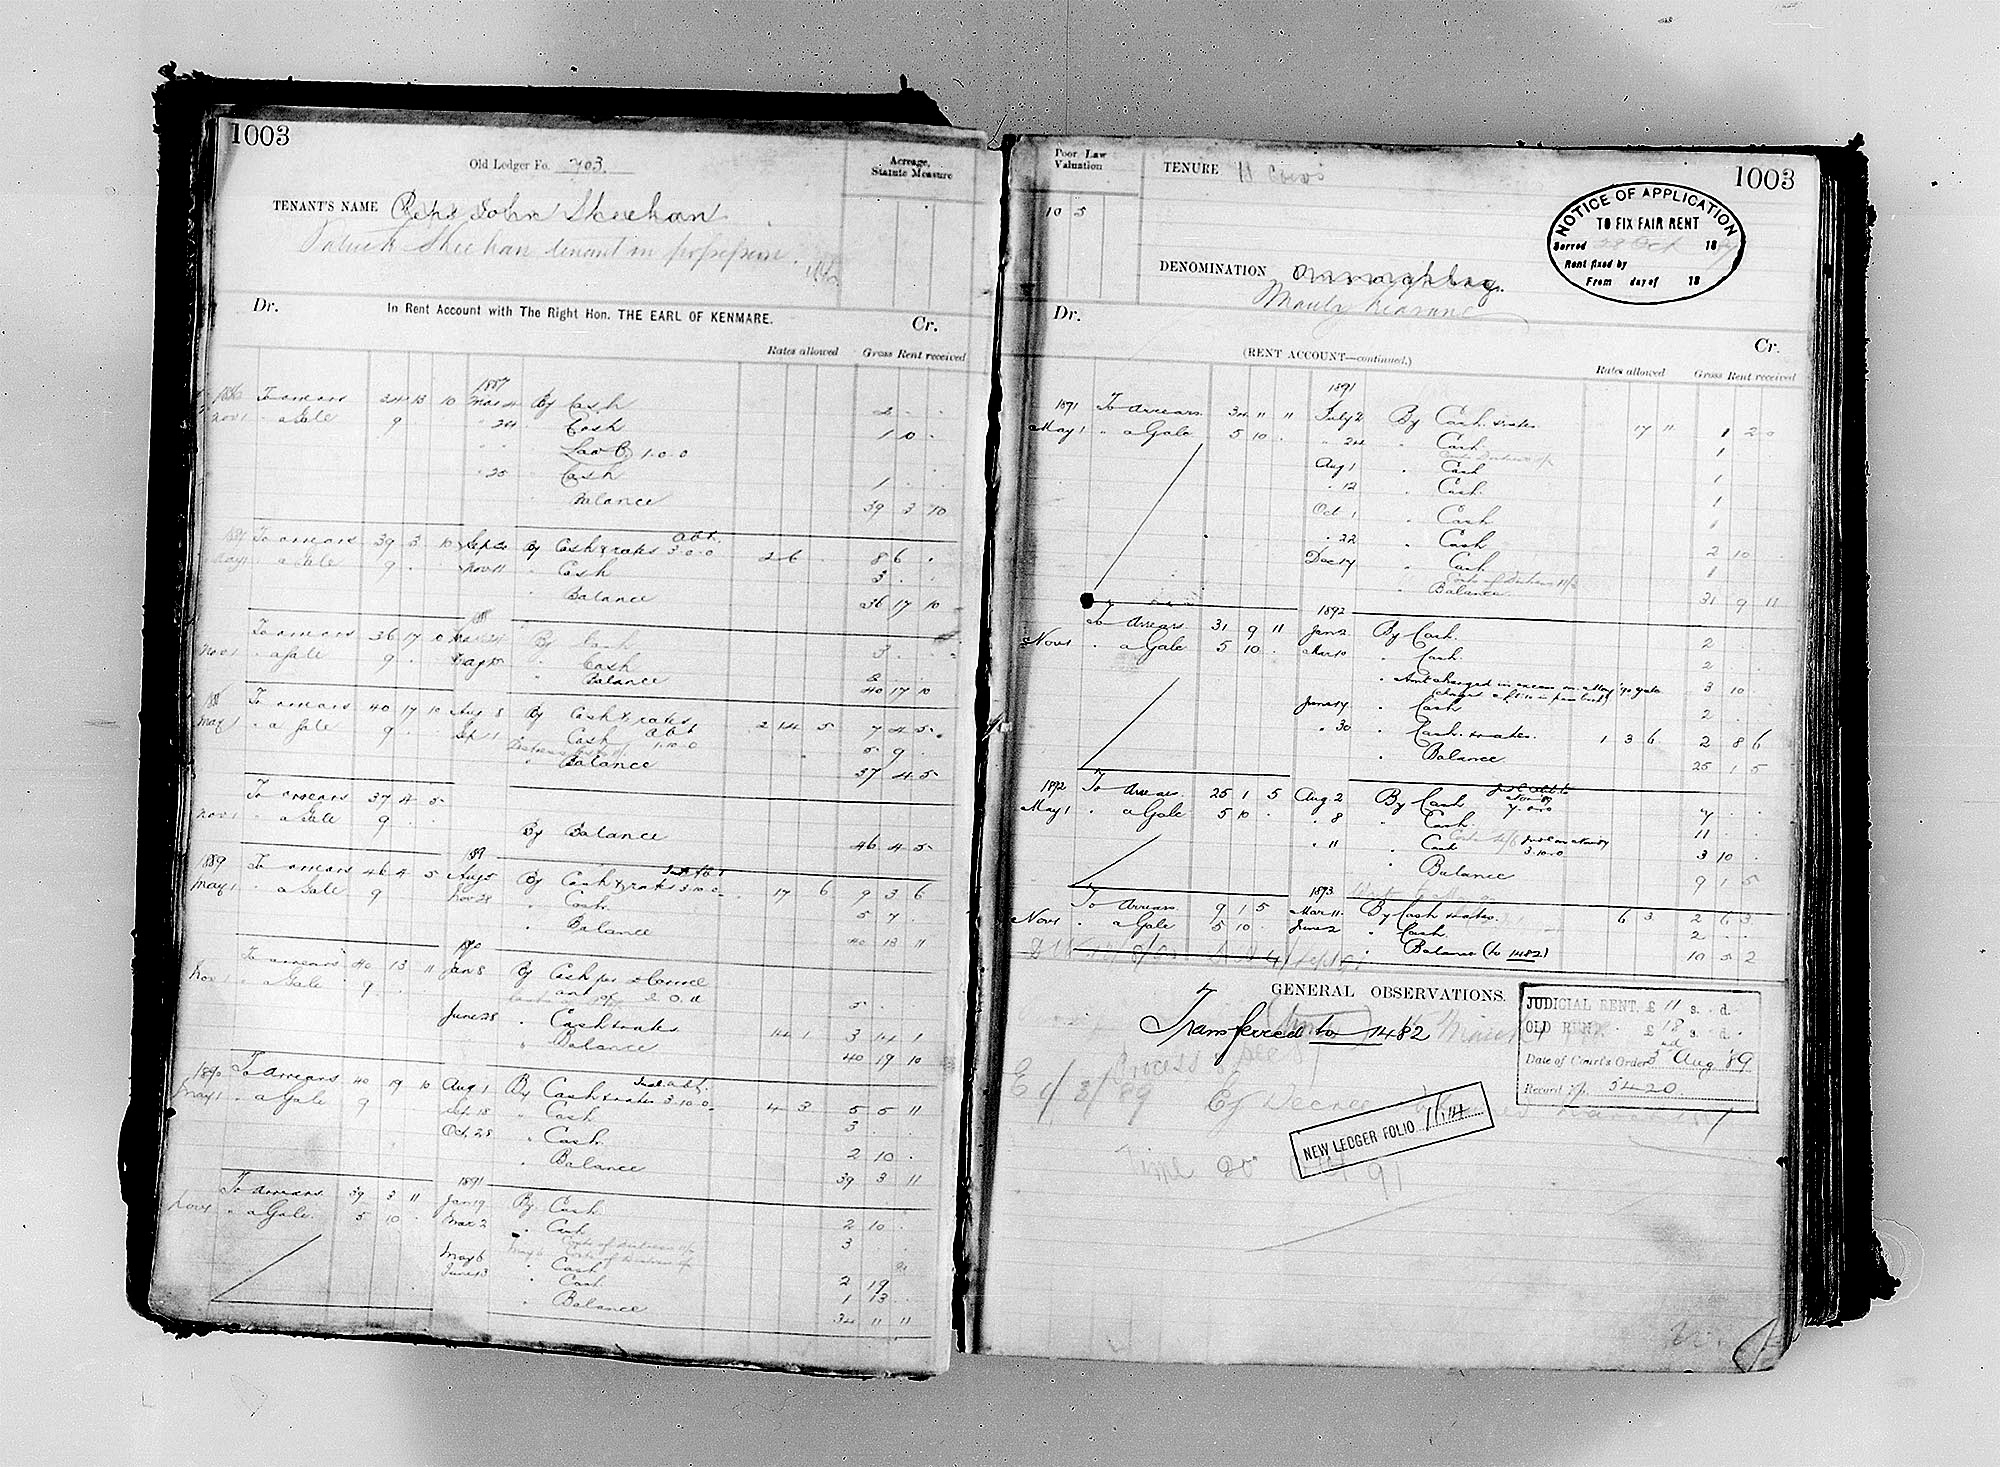 1003
Old Ledger Fo. 703.
Acreage, Statute Measure
TENANT'S NAME Reps John Sheehan
Patrick Sheehan tenant in possession.
Dr. In Rent Account with The Right Hon. THE EARL OF KENMARE. Cr.
Rates allowed Gross Rent received
1887
1886 To arrears 34 13 10 Mar 4 By Cash 2 . .
Nov 1 " a Gale 9 . . " 24 " Cash 1 0 .
" Law C 1.0.0
" 25 " Cash 1 . .
" Balance 39 3 10
1887 To arrears 39 3 10 Sep 20 By Cash & rates abt. 3.0.0 2 6 . 8 6 .
May 1 " a Gale 9 . . Nov 11 " Cash 3 . .
" Balance 36 17 10
To arrears 36 17 10 Mar 24 By Cash 3 . .
Nov 1 " a Gale 9 . . " Cash 2 . .
" Balance 40 17 10
188 To arrears 40 17 10 Aug 8 By Cash & rates 2 14 5 7 4 5
May 1 " a Gale 9 . . Sep 1 " Cash abt 1.10.0 5 9 .
" Balance 37 4 5
To arrears 37 4 5
Nov 1 " a Gale 9 . . By Balance 46 4 5
1889 To arrears 46 4 5 Aug 5 By Cash & rates 3.10.0 17 6 9 3 6
May 1 " a Gale 9 Nov 28 " Cash 5 7 .
" Balance 40 13 11
1890
To arrears 40 13 11 Jan 8 By Cash per
Nov 1 " a Gale 9 . . 5 . .
June 28 " Cash & rates 14 1 3 14 1
" Balance 40 19 10
1890 To Arrears 40 19 10 Aug 1 By Cash & rates Jud. abt. 3.10.0 4 3 5 5 11
May 1 " a Gale 9 . . Sep 18 " Cash 3 . .
Oct. 28 " Cash 2 10 .
" Balance 39 3 11
1891
To Arrears 39 3 11 Jan 19 By Cash 2 10 .
Nov 1 " a Gale 5 10 . Mar 2 " Cash 3 .
Costs of distress
May 6 " Cash 2 19
June 13 " Cash 1 13 .
" Balance 34 11 11
Poor Law Valuation
10 5
TENURE
1003
NOTICE OF APPLICATION
TO FIX FAIR RENT
Served 28 Oct 18
Rent fixed by
From day of 18
DENOMINATION
Dr. (RENT ACCOUNT—continued.) Cr.
Rates allowed Gross Rent received
1891
1891 To Arrears 34 11 11 July 2 By Cash & rates 17 11 1 2 0
May 1 " a Gale 5 10 . " 24 " Cash 1
Aug 1 " Cash 1
" 12 " Cash 1
Oct 1 " Cash 1
" 22 " Cash 2 10 .
Dec 17 " Cash 1
" Balance 31 9 11
1892
To Arrears 31 9 11 Jan 2 By Cash. 2
Nov 1 " a Gale 5 10 . Mar 10 " Cash. 2 . .
" Amt charged in excess on May '90 Gale 3 10 .
June 17 " Cash 2 . .
" 30 " Cash & rates. 1 3 6 2 8 6
" Balance 25 1 5
1892 To Arrears 25 1 5 Aug 2 By Cash 7.0.0 7 . .
May 1 " a Gale 5 10 . " 8 " Cash. 11 . .
" 11 " Cash 3.10.0 3 10 .
" Balance 9 1 5
1893
To Arrears 9 1 5 Mar 11 By Cash & rates. 6 3 2 6 3
Nov 1 " a Gale 5 10 . June 2 " Cash. 2 . .
" Balance (to 1482) 10 5 2
GENERAL OBSERVATIONS.
Transferred to 1482
JUDICIAL RENT, £ 11 s. . d.
OLD RENT £ 18 s. . d.
Date of Court's Order 3rd Aug 89
Record No. 5420
E 1/3/89 Ej Decree
NEW LEDGER FOLIO 1614